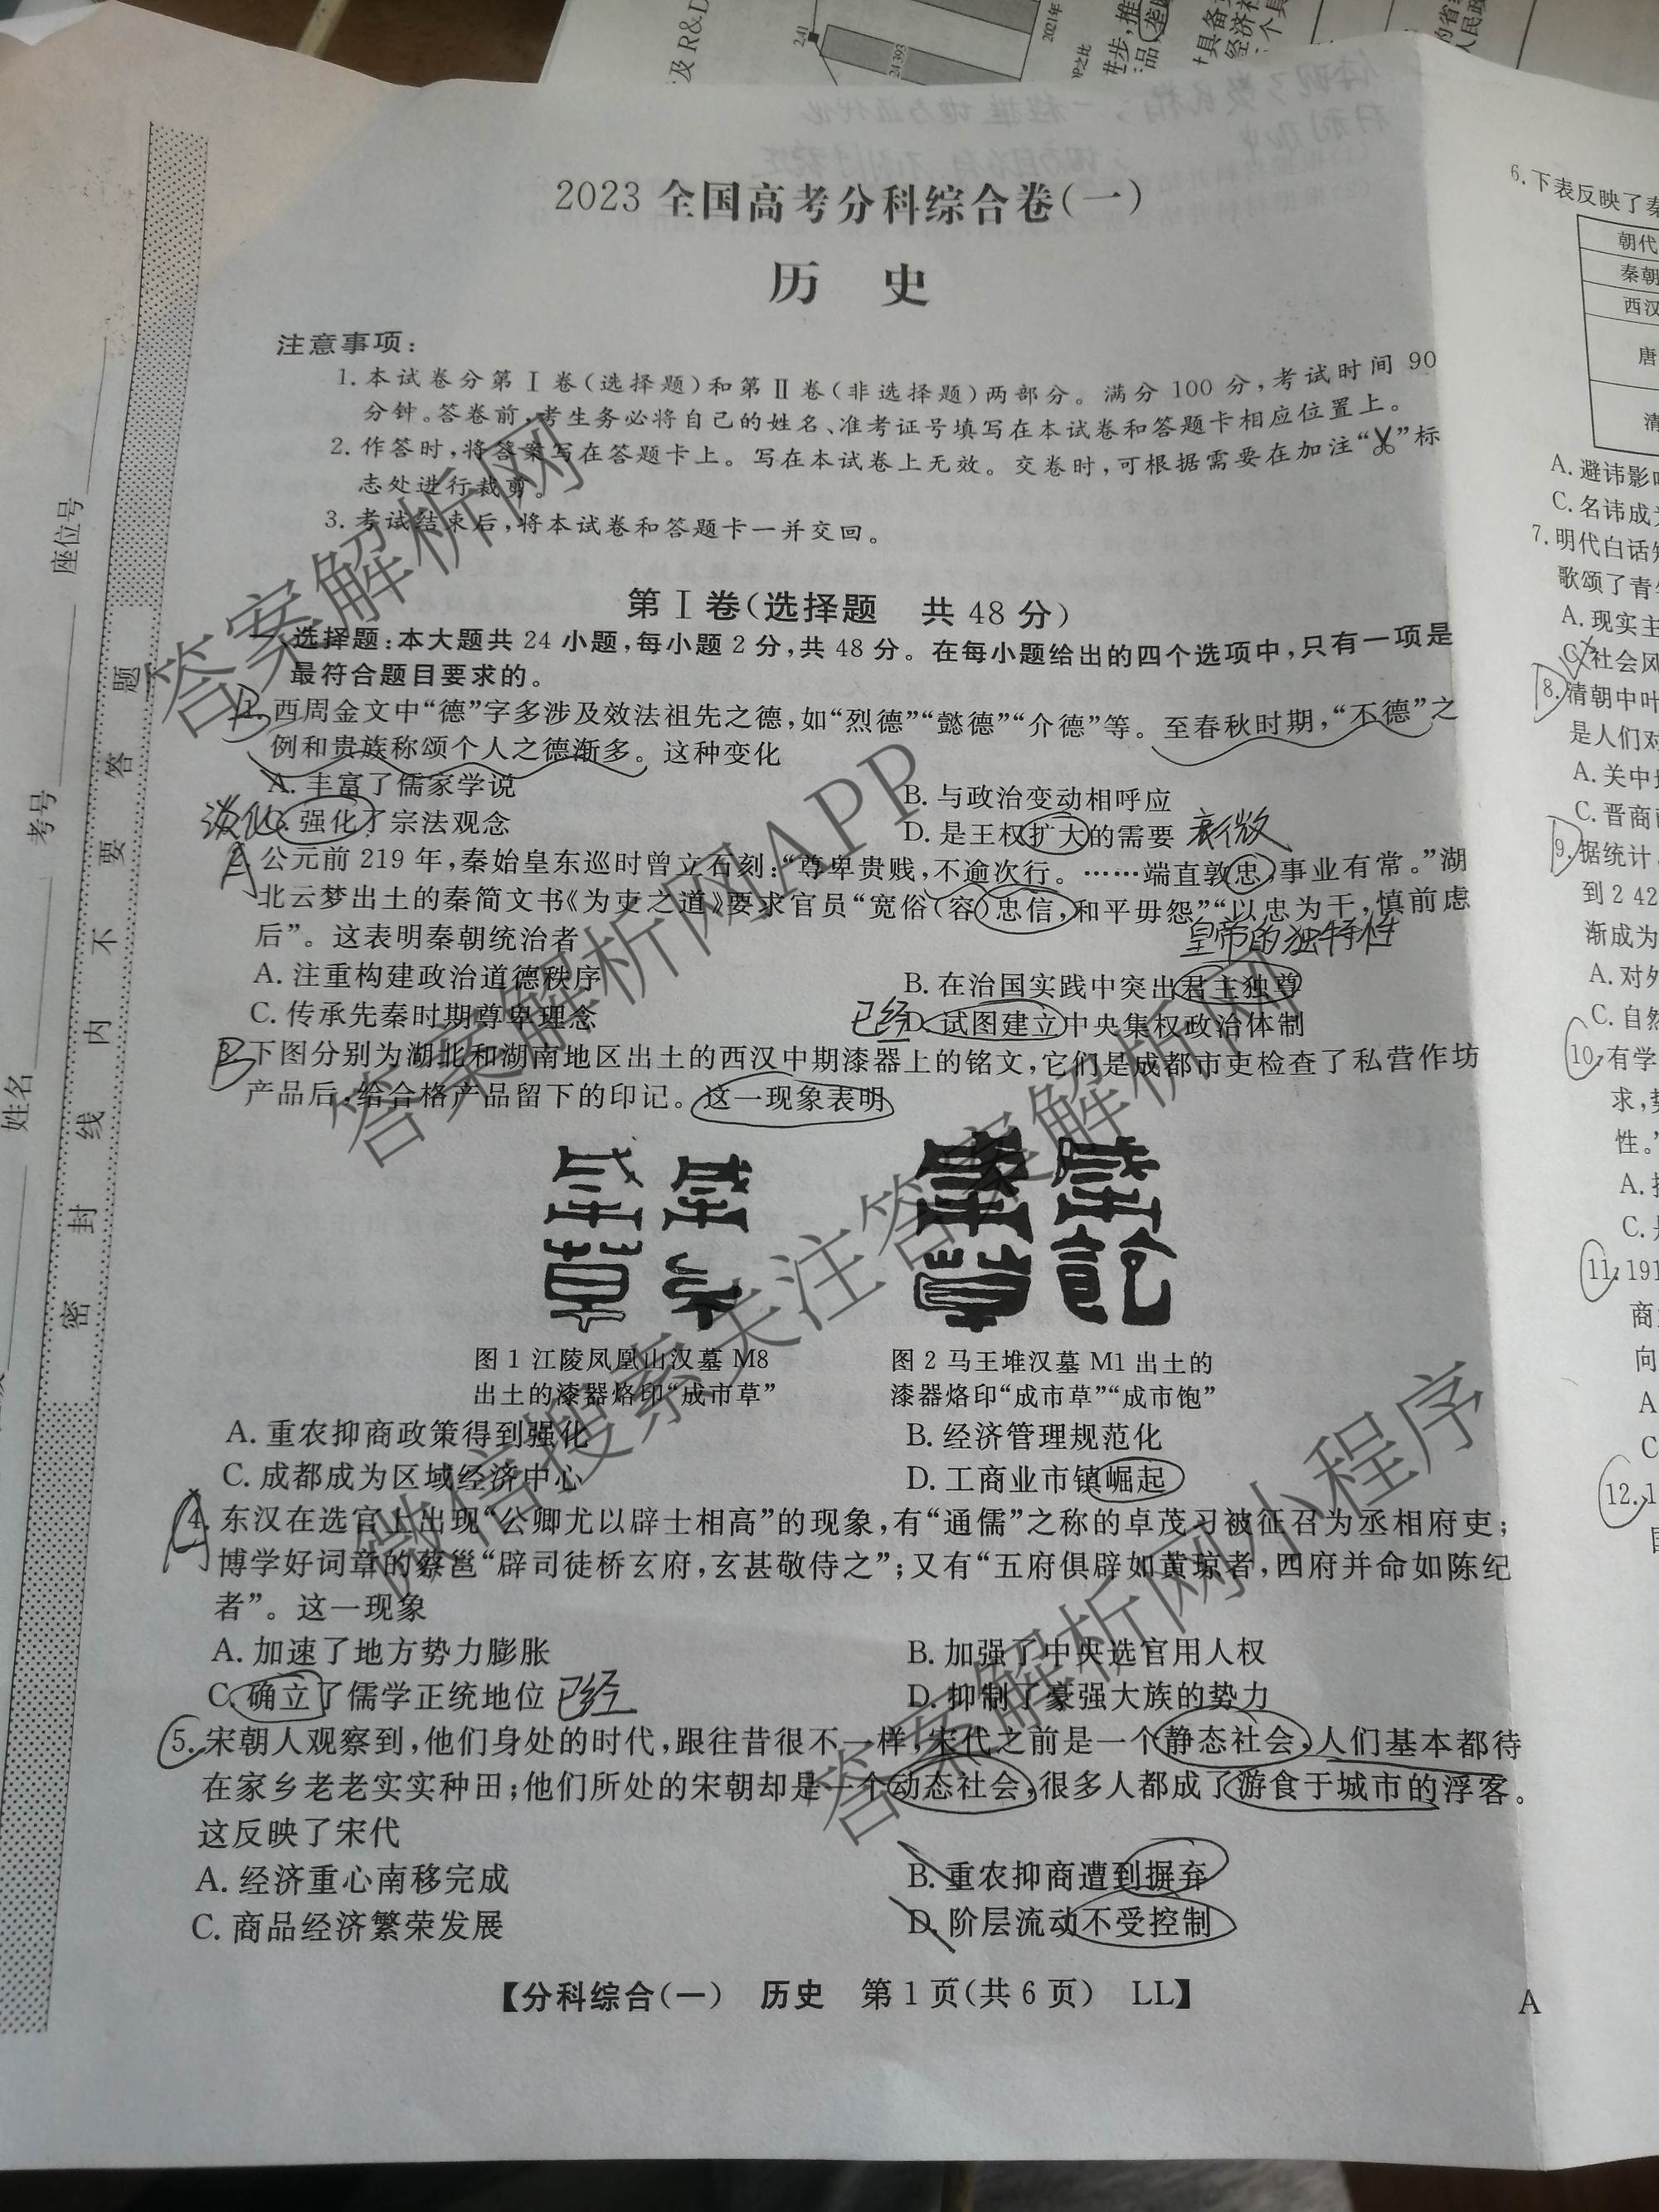 及 R&D
2.41
24 393
2021年
2023 全国高考分科综合卷(一)
历 史
注意事项:
1. 本试卷分第 Ⅰ 卷(选择题)和第 Ⅱ 卷(非选择题)两部分。满分 100 分,考试时间 90
分钟。答卷前,考生务必将自己的姓名、准考证号填写在本试卷和答题卡相应位置上。
2. 作答时,将答案写在答题卡上。写在本试卷上无效。交卷时,可根据需要在加注“✂”标
志处进行裁剪。
3. 考试结束后,将本试卷和答题卡一并交回。
第 Ⅰ 卷(选择题 共 48 分)
一、选择题:本大题共 24 小题,每小题 2 分,共 48 分。在每小题给出的四个选项中,只有一项是
最符合题目要求的。
B
1. 西周金文中“德”字多涉及效法祖先之德,如“烈德”“懿德”“介德”等。至春秋时期,“不德”之
例和贵族称颂个人之德渐多。这种变化
A. 丰富了儒家学说
B. 与政治变动相呼应
淡化
C. 强化了宗法观念
D. 是王权扩大的需要 衰微
A
2. 公元前 219 年,秦始皇东巡时曾立石刻:“尊卑贵贱,不逾次行。……端直敦忠,事业有常。”湖
北云梦出土的秦简文书《为吏之道》要求官员“宽俗(容)忠信,和平毋怨”“以忠为干,慎前虑
后”。这表明秦朝统治者
皇帝的独特性
A. 注重构建政治道德秩序
B. 在治国实践中突出君主独尊
C. 传承先秦时期尊卑理念
已经
D. 试图建立中央集权政治体制
B
3. 下图分别为湖北和湖南地区出土的西汉中期漆器上的铭文,它们是成都市吏检查了私营作坊
产品后,给合格产品留下的印记。这一现象表明
图 1 江陵凤凰山汉墓 M8
出土的漆器烙印“成市草”
图 2 马王堆汉墓 M1 出土的
漆器烙印“成市草”“成市饱”
A. 重农抑商政策得到强化
B. 经济管理规范化
C. 成都成为区域经济中心
D. 工商业市镇崛起
A
4. 东汉在选官上出现“公卿尤以辟士相高”的现象,有“通儒”之称的卓茂习被征召为丞相府吏;
博学好词章的蔡邕“辟司徒桥玄府,玄甚敬侍之”;又有“五府俱辟如黄琼者,四府并命如陈纪
者”。这一现象
A. 加速了地方势力膨胀
B. 加强了中央选官用人权
C. 确立了儒学正统地位 已经
D. 抑制了豪强大族的势力
5. 宋朝人观察到,他们身处的时代,跟往昔很不一样,宋代之前是一个静态社会,人们基本都待
在家乡老老实实种田;他们所处的宋朝却是一个动态社会,很多人都成了游食于城市的浮客。
这反映了宋代
A. 经济重心南移完成
B. 重农抑商遭到摒弃
C. 商品经济繁荣发展
D. 阶层流动不受控制
【分科综合(一) 历史 第 1 页(共 6 页) LL】
A
座位号
考号
姓名
密 封 线 内 不 要 答 题
6. 下表反映了秦
朝代
秦朝
西汉
唐
清
A. 避讳影
C. 名讳成
7. 明代白话
歌颂了青
A. 现实主
C. 社会风
8. 清朝中叶
是人们对
A. 关中
C. 晋商
9. 据统计
到 2 42
渐成为
A. 对外
C. 自然
10. 有学
求,
性。”
A.
C.
11. 191
商
向
A
C
12. 1
答案解析网
答案解析网APP
微信搜索关注答案解析网
答案解析网小程序